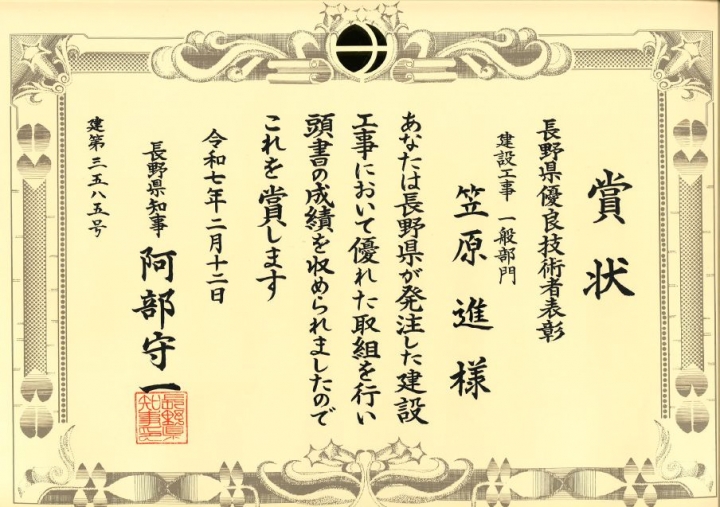 賞状
長野県優良技術者表彰
建設工事 一般部門
笠原 進 様
あなたは長野県が発注した建設
工事において優れた取組を行い
頭書の成績を収められましたので
これを賞します
令和七年二月十二日
長野県知事 阿部守一
長野県知事印
建第三五八五号